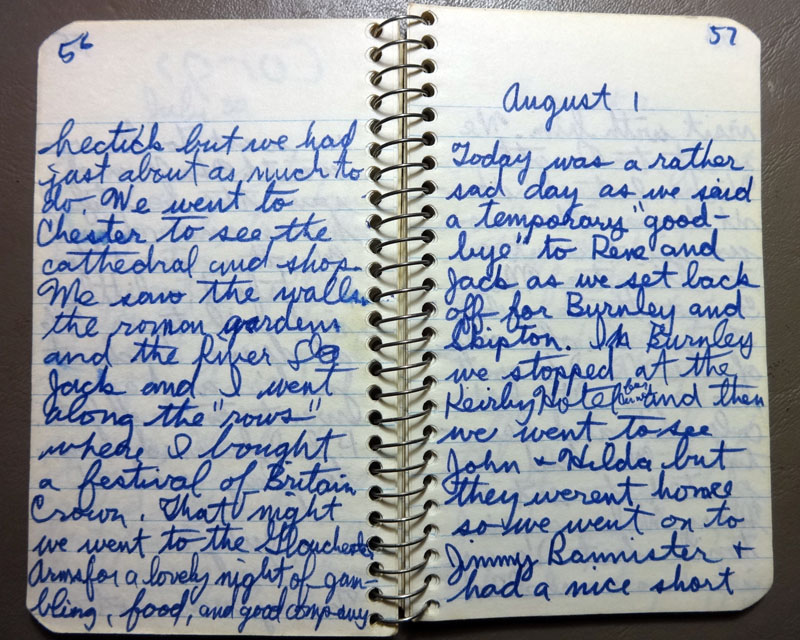 56
hectick but we had
just about as much to
do. We went to
Chester to see the
cathedral and shop.
We saw the walls,
the roman gardens
and the River Dee
Jack and I went
along the "rows"
where I bought
a festival of Britain
Crown. That night
we went to the Gloucester
Arms for a lovely night of gam-
bling, food, and good company
57
August 1
Today was a rather
sad day as we said
a temporary "good-
bye" to Rene and
Jack as we set back
off for Burnley and
Skipton. In Burnley
we stopped at the
Keirby Hotel and then
we went to see
John + Hilda but
they werent home
so we went on to
Jimmy Bannister +
had a nice short